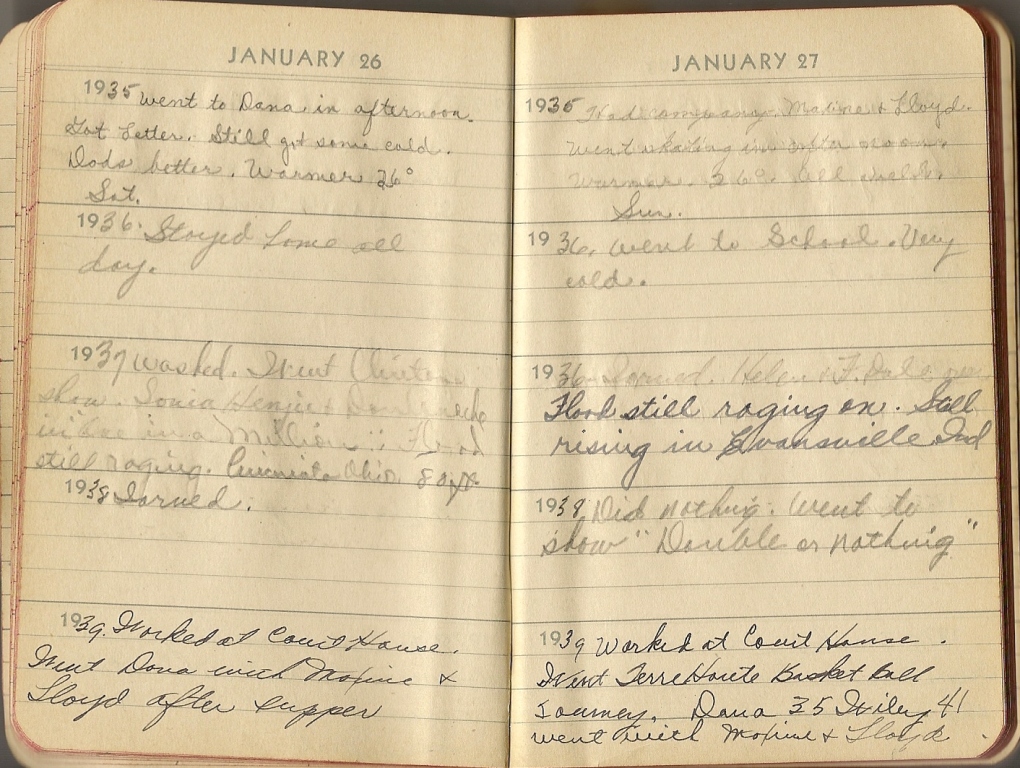 JANUARY 26
1935 Went to Dana in afternoon.
Got Letter. Still got some cold.
Dads better. Warmer 26°
Sat.
1936. Stayed home all
day.
1937 Washed. Went Clinton
show. Sonia Henjie +
in "One in a Million". Flood
still raging. Ohio 80
1938 Ironed.
1939. Worked at Court House.
Went Dana with Maxine &
Lloyd after supper
JANUARY 27
1935 Had company. Maxine & Lloyd.
Went skating in afternoon.
Warmer. 26°. All
Sun.
1936. Went to School. Very
cold.
1936 Ironed. Helen & F. Dale
Flood still raging on. Still
rising in Evansville Ind
1938, Did nothing. Went to
show "Double or Nothing"
1939 Worked at Court House.
Went Terre Haute Basket Ball
Tourney. Dana 35 Wiley 41
went with Maxine & Lloyd.